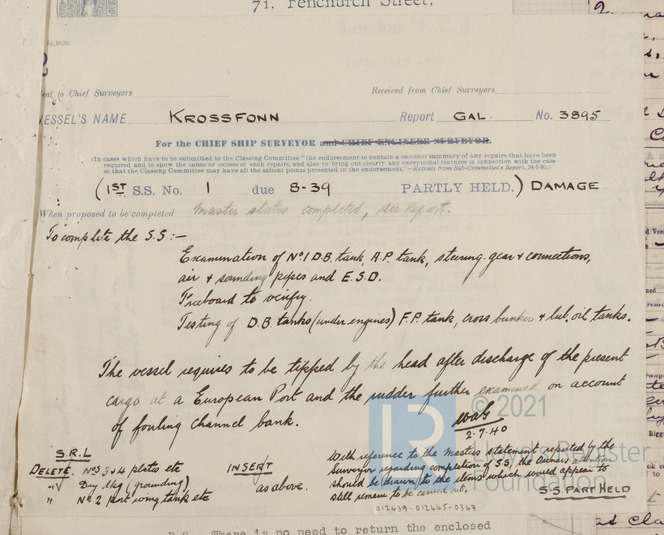 71, Fenchurch Street.
Sent to Chief Surveyors
Received from Chief Surveyors
VESSEL'S NAME KROSSFONN Report GAL. No. 3895
For the CHIEF SHIP SURVEYOR and CHIEF ENGINEER SURVEYOR.
(In cases which have to be submitted to the Classing Committee "the endorsement to contain a succinct summary of any repairs that have been
required and to show the cause or causes of such repairs, and also to bring out clearly any exceptional features in connection with the case
so that the Classing Committee may have all the salient points presented in the endorsement."—Extract from Sub-Committee's Report,
(1ST S.S. No. 1 due 8-39 PARTLY HELD.) DAMAGE
When proposed to be completed Master states completed, see Report.
To complete the S.S:-
Examination of No 1 D.B. tank, A.P. tank, steering gear & connections,
air & sounding pipes and E.S.D.
Freeboard to verify.
Testing of D.B. tanks (under engines) F.P. tank, cross bunker & lub. oil tanks.
The vessel requires to be tipped by the head after discharge of the present
cargo at a European Port and the rudder further examined on account
of fouling channel bank.
2.7.40
© 2021
Lloyd's Register
Foundation
S.R.L
DELETE. Nos 3 & 4 plates etc INSERT
" Dry dkg (grounding) as above.
" No 2 port wing tank etc
With reference to the Masters statement reported by the
Surveyor regarding completion of S.S, the owners attention
should be drawn to the items which would appear to
still remain to be carried out.
S.S. PART HELD
012439-012445-0347
P.S. There is no need to return the enclosed
2.